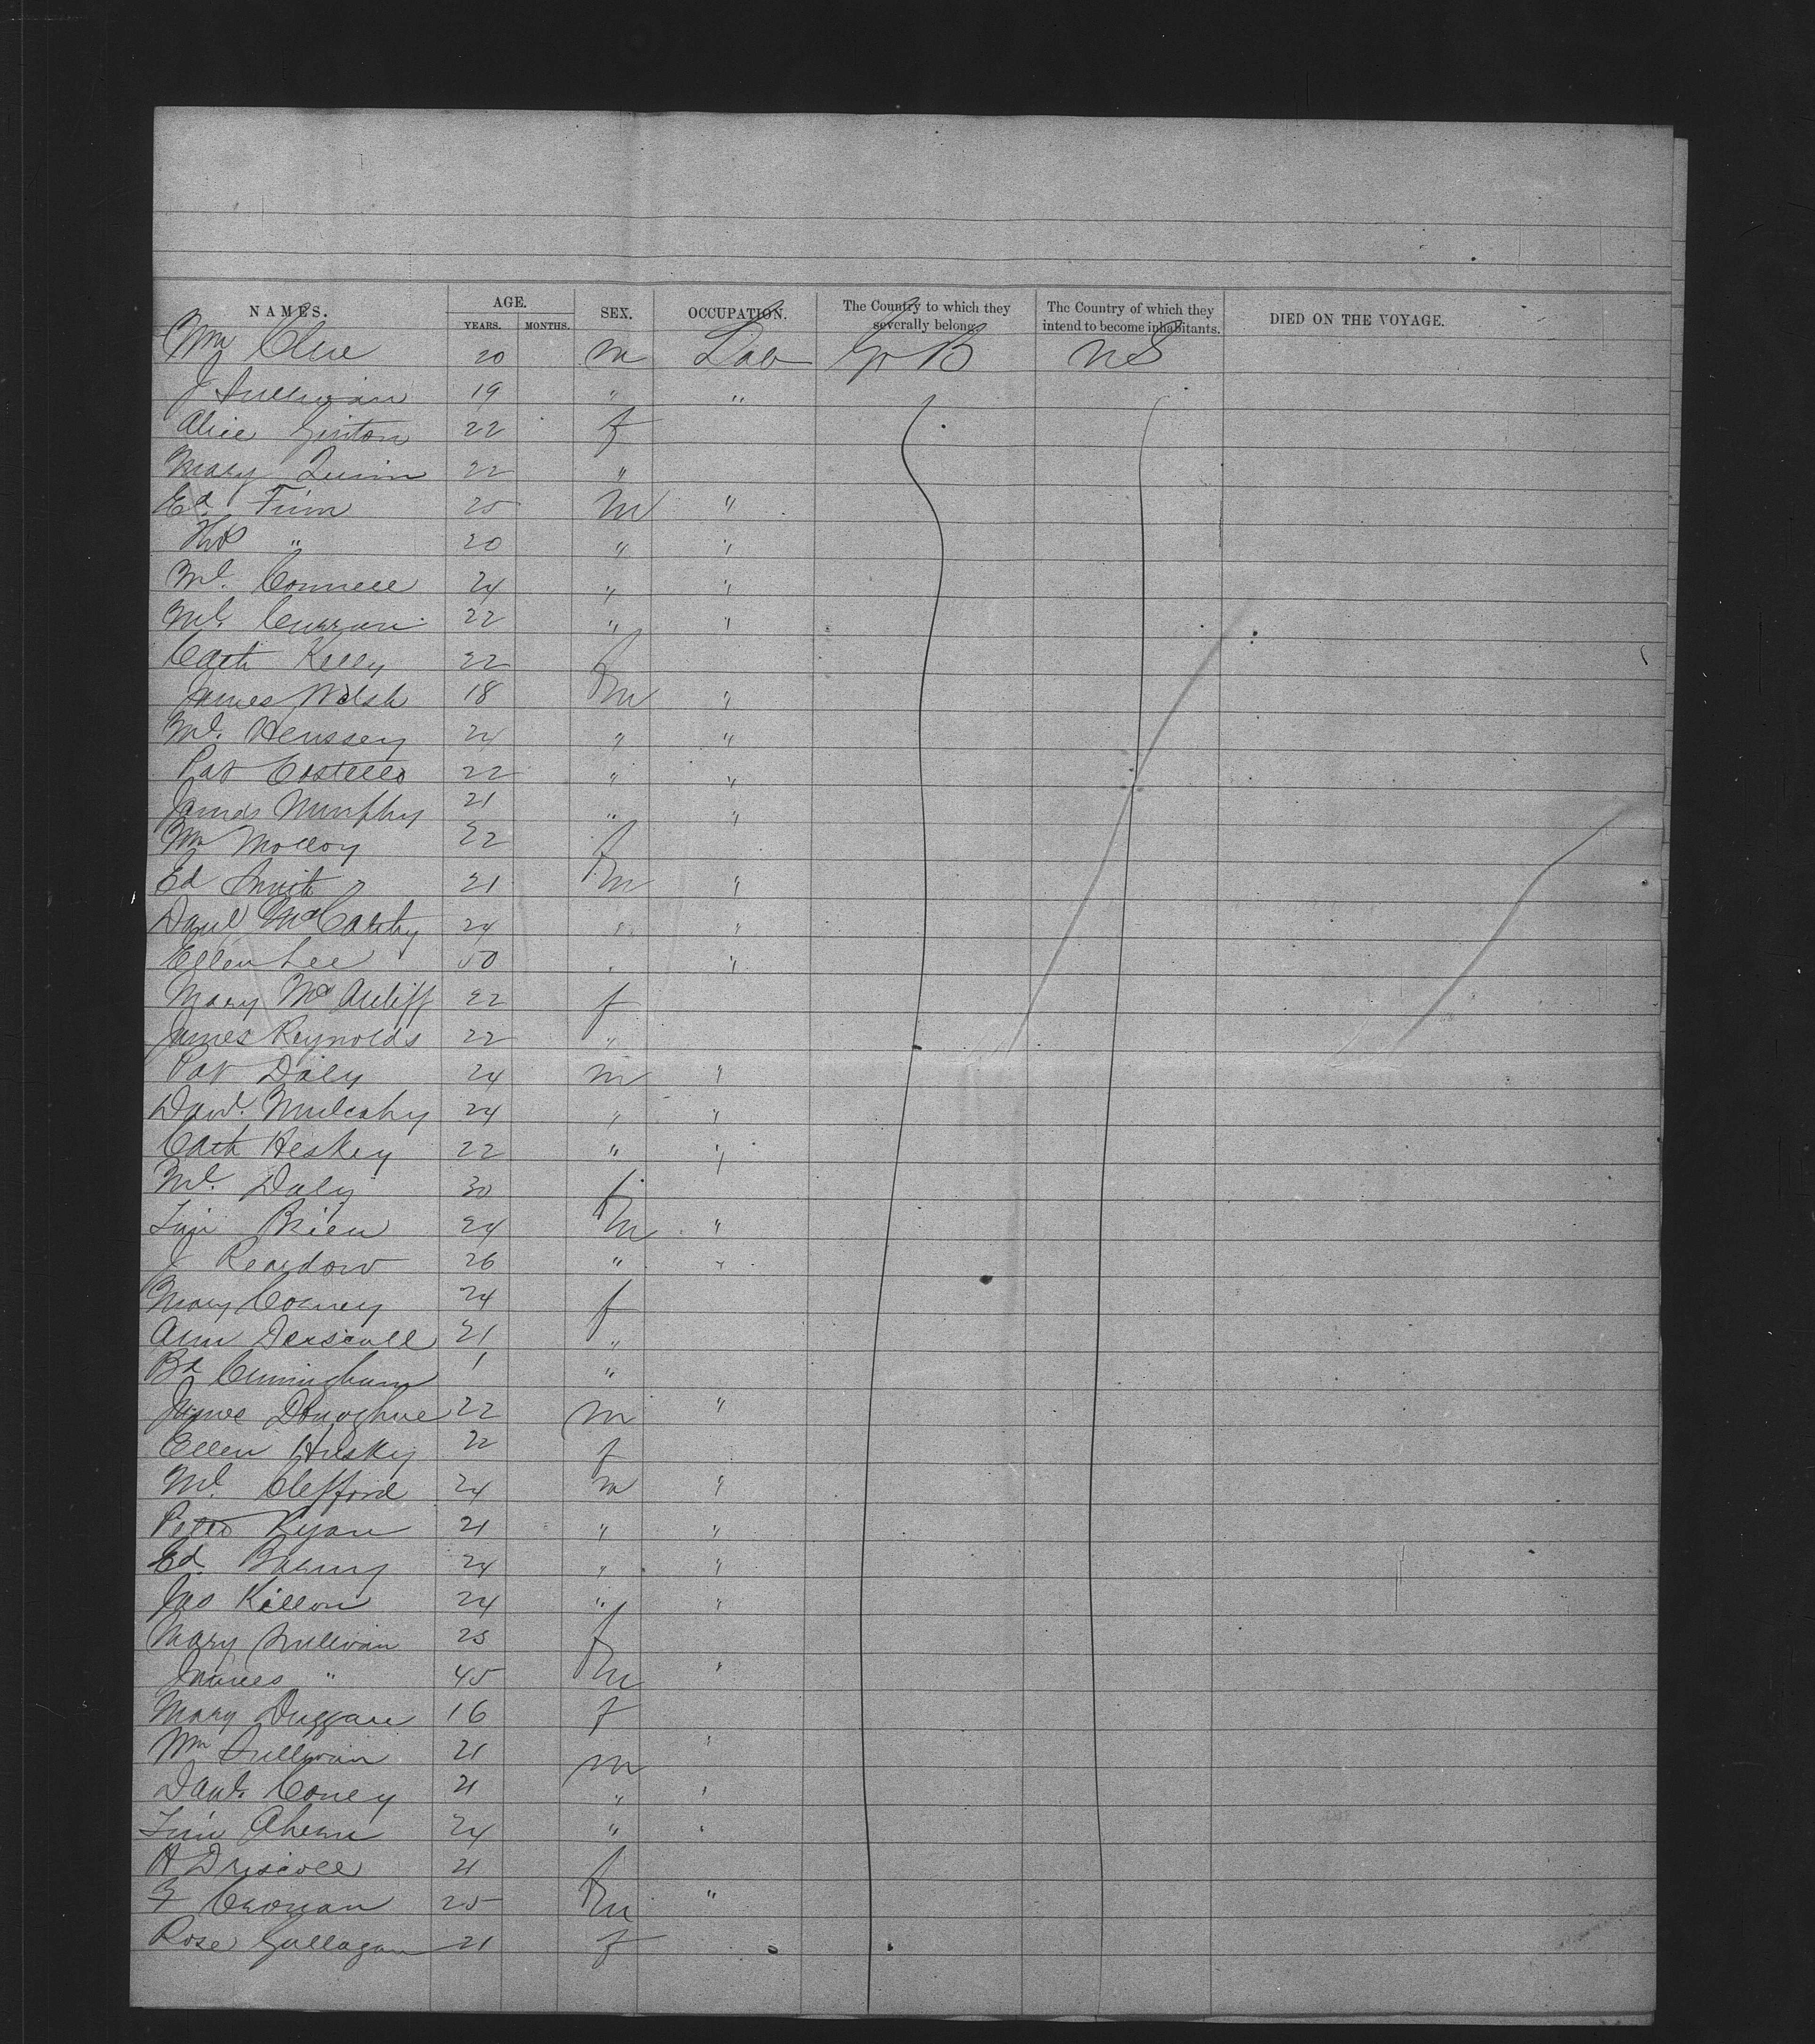 NAMES. AGE. SEX. OCCUPATION. The Country to which they severally belong. The Country of which they intend to become inhabitants. DIED ON THE VOYAGE.
YEARS. MONTHS.
Wm Clue 20 m Lab Gr B US
J Sullivan 19 " "
Alice Ginton 22 f
Mary Quinn 22 "
Ed. Finn 25 m "
Thos " 20 " "
Ml. Connell 24 " "
Ml. Curran 22 " "
Cath Kelly 22 f
James Walsh 18 m "
Ml. Henssey 24 " "
Pat Costello 22 " "
James Murphy 21 " "
Wm Molloy 22 f
Ed Smith 21 m "
Danl McCarthy 24 " "
Ellen Lee 50 "
Mary McAuliff 22 f
James Reynolds 22 "
Pat Daly 24 m "
Danl. Mulcahy 24 " "
Cath Heskey 22 " "
Ml. Daly 30 f
Tim Brien 24 m "
J Reardow 26 " "
Mary Corney 24 f
Ann Derscoll 21 "
Bd Cuningham 1 "
James Donoghue 22 m "
Ellen Huskey 22 f
Ml. Clefford 24 m "
Peter Ryan 21 " "
Ed. Barny 24 " "
Jas Killon 24 " "
Mary Sullivan 25 f
James " 45 m "
Mary Duggan 16 f
Wm Sullivan 21 m "
Danl. Coney 21 " "
Tim Ahern 24 " "
H Driscoll 21 f
F Cronan 25 m "
Rose Gallagan 21 f